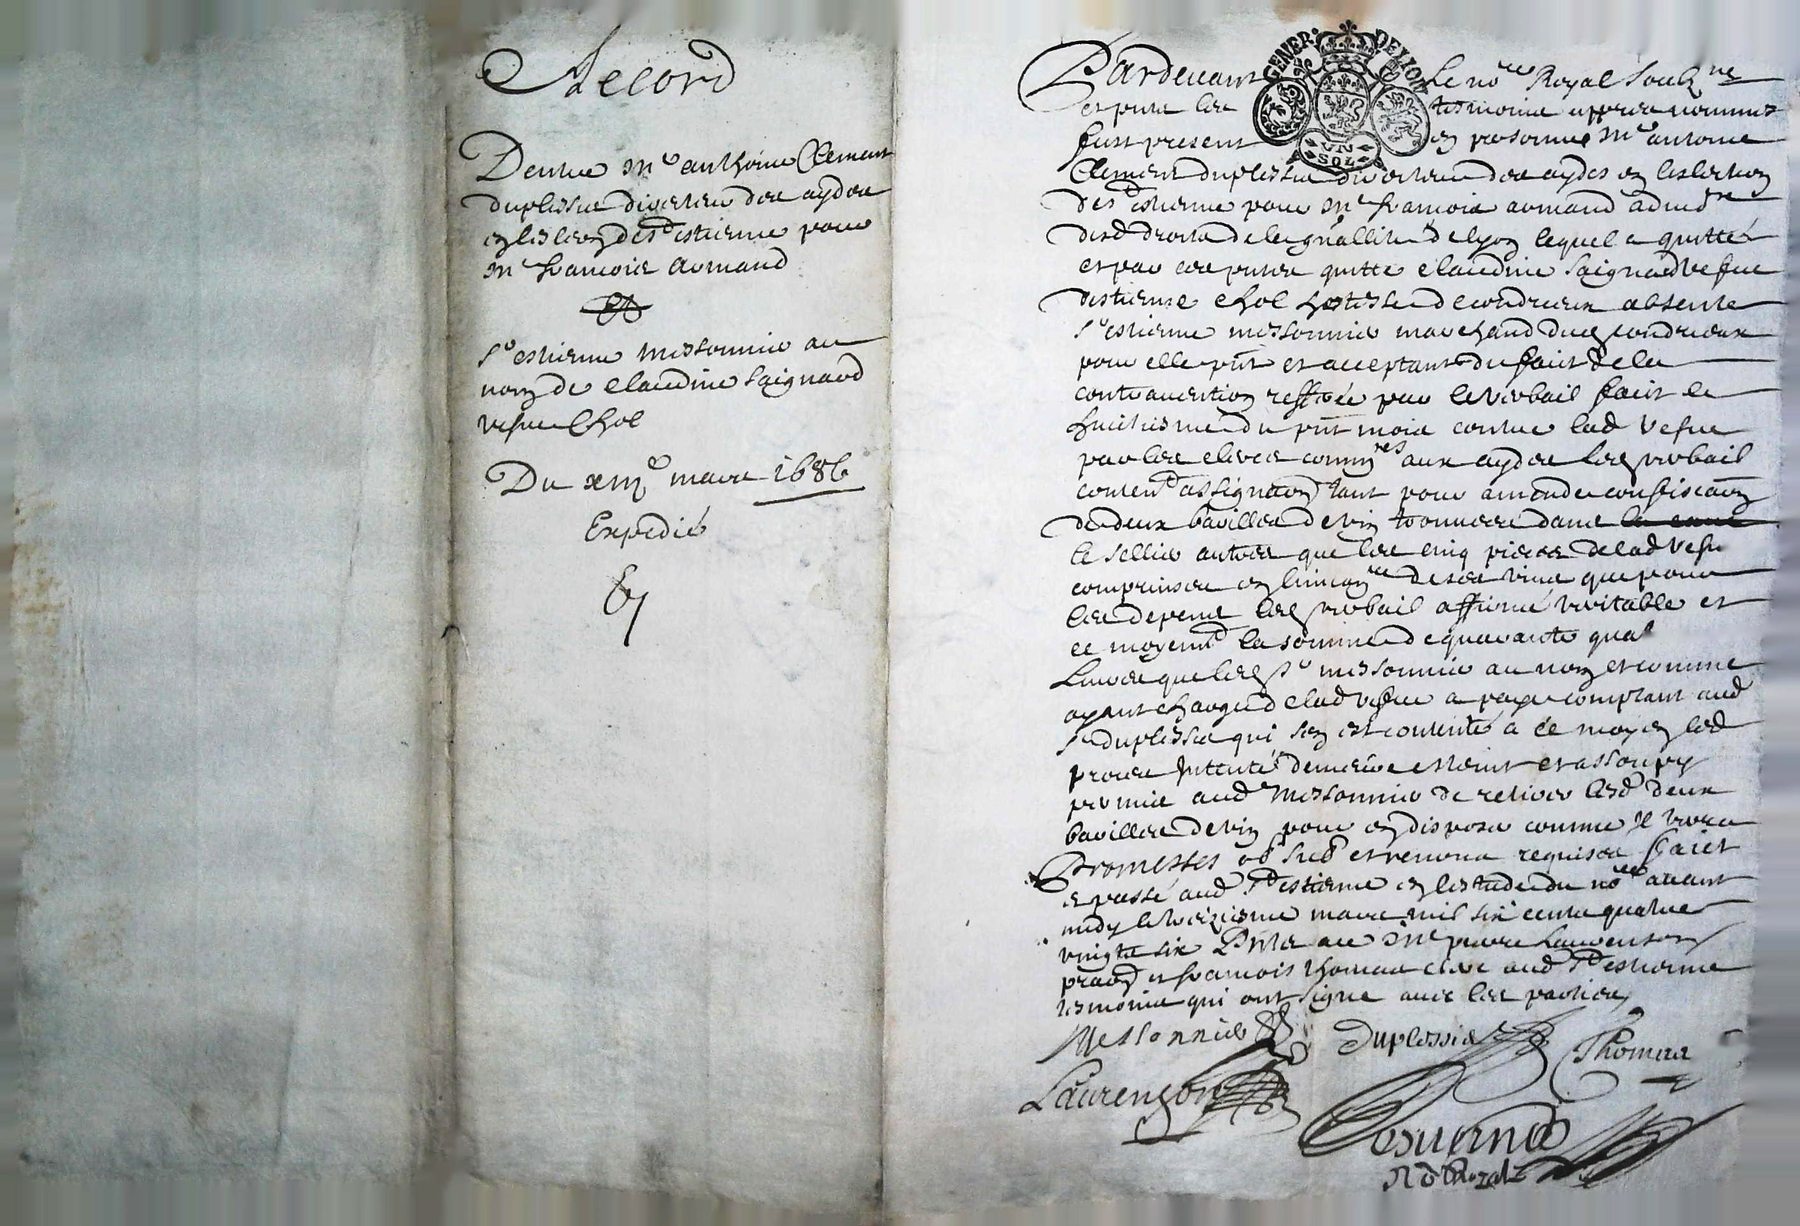 Accord
Dentre Mre anthoine Clement
duplessis directeur des aydes
en leslection de st estienne pour
Mre francois Armand
Et
sr estienne messonnier au
nom de claudine saignard
vefue Chol
Du xiije mars 1686
Expedié
GENER. DE LION
UN SOL
Pardeuant le nore Royal soubzne
et pnts les tesmoins appres nommes
fust present en personne Mre antoine
Clement duplessis directeur des aydes en leslection
de st estienne pour Mre francois armand adjudre
desd droits de la gnallité de lyon lequel a quitté
et par ces pntes quitte claudine saignard vefue
destienne chol hostesse de condrieux absente
sr estienne messonnier marchand dud condrieux
pour elle pnt et acceptant du fait de la
contrauention resultée par le verbail fait le
huictiesme du pnt mois contre lad vefue
par les clercs commis aux aydes led verbail
content assignaon tant pour amende confiscaon
de deux barilles de vin trouuees dans la caue
le sellier autres que les cinq pieces de lad vefue
comprinses en linuenre de ses vins que pour
les depens led verbail affirmé veritable et
ce moyent la somme de quarante quatre
Liures que led sr messonnier au nom et comme
ayant charge de lad vefue a payé comptant aud
sr duplessis qui sen est contenté a ce moyen led
proces Intenté demeure esteint et assoupy
permis aud messonnier de retirer lesd deux
barilles de vin pour en disposer comme Il verra
Promesses obon subon et renons requises fait
et passé aud st estienne en lestude du nore auant
midy le treiziesme mars mil six cents quatre
vingts six Pnts a ce Mre pierre Laurenson
praon et francois thomas clerc aud st estienne
tesmoins qui ont signe auec les parties
Messonnier Duplessis Thomas
Laurenson
Desuerned
No Royal